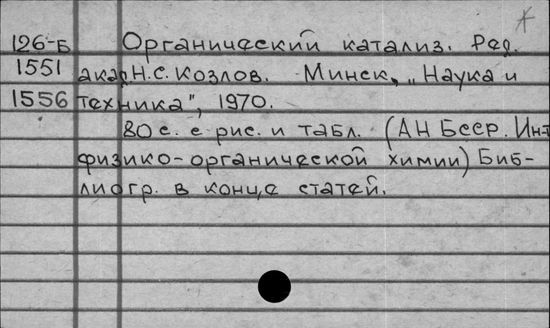 126-Б Органический катализ. Ред.
1551 акад. Н.С. Козлов. Минск, „Наука и
1556 техника", 1970.
80 с. с рис. и табл. (АН БССР. Инт
физико-органической химии) Биб-
лиогр. в конце статей.